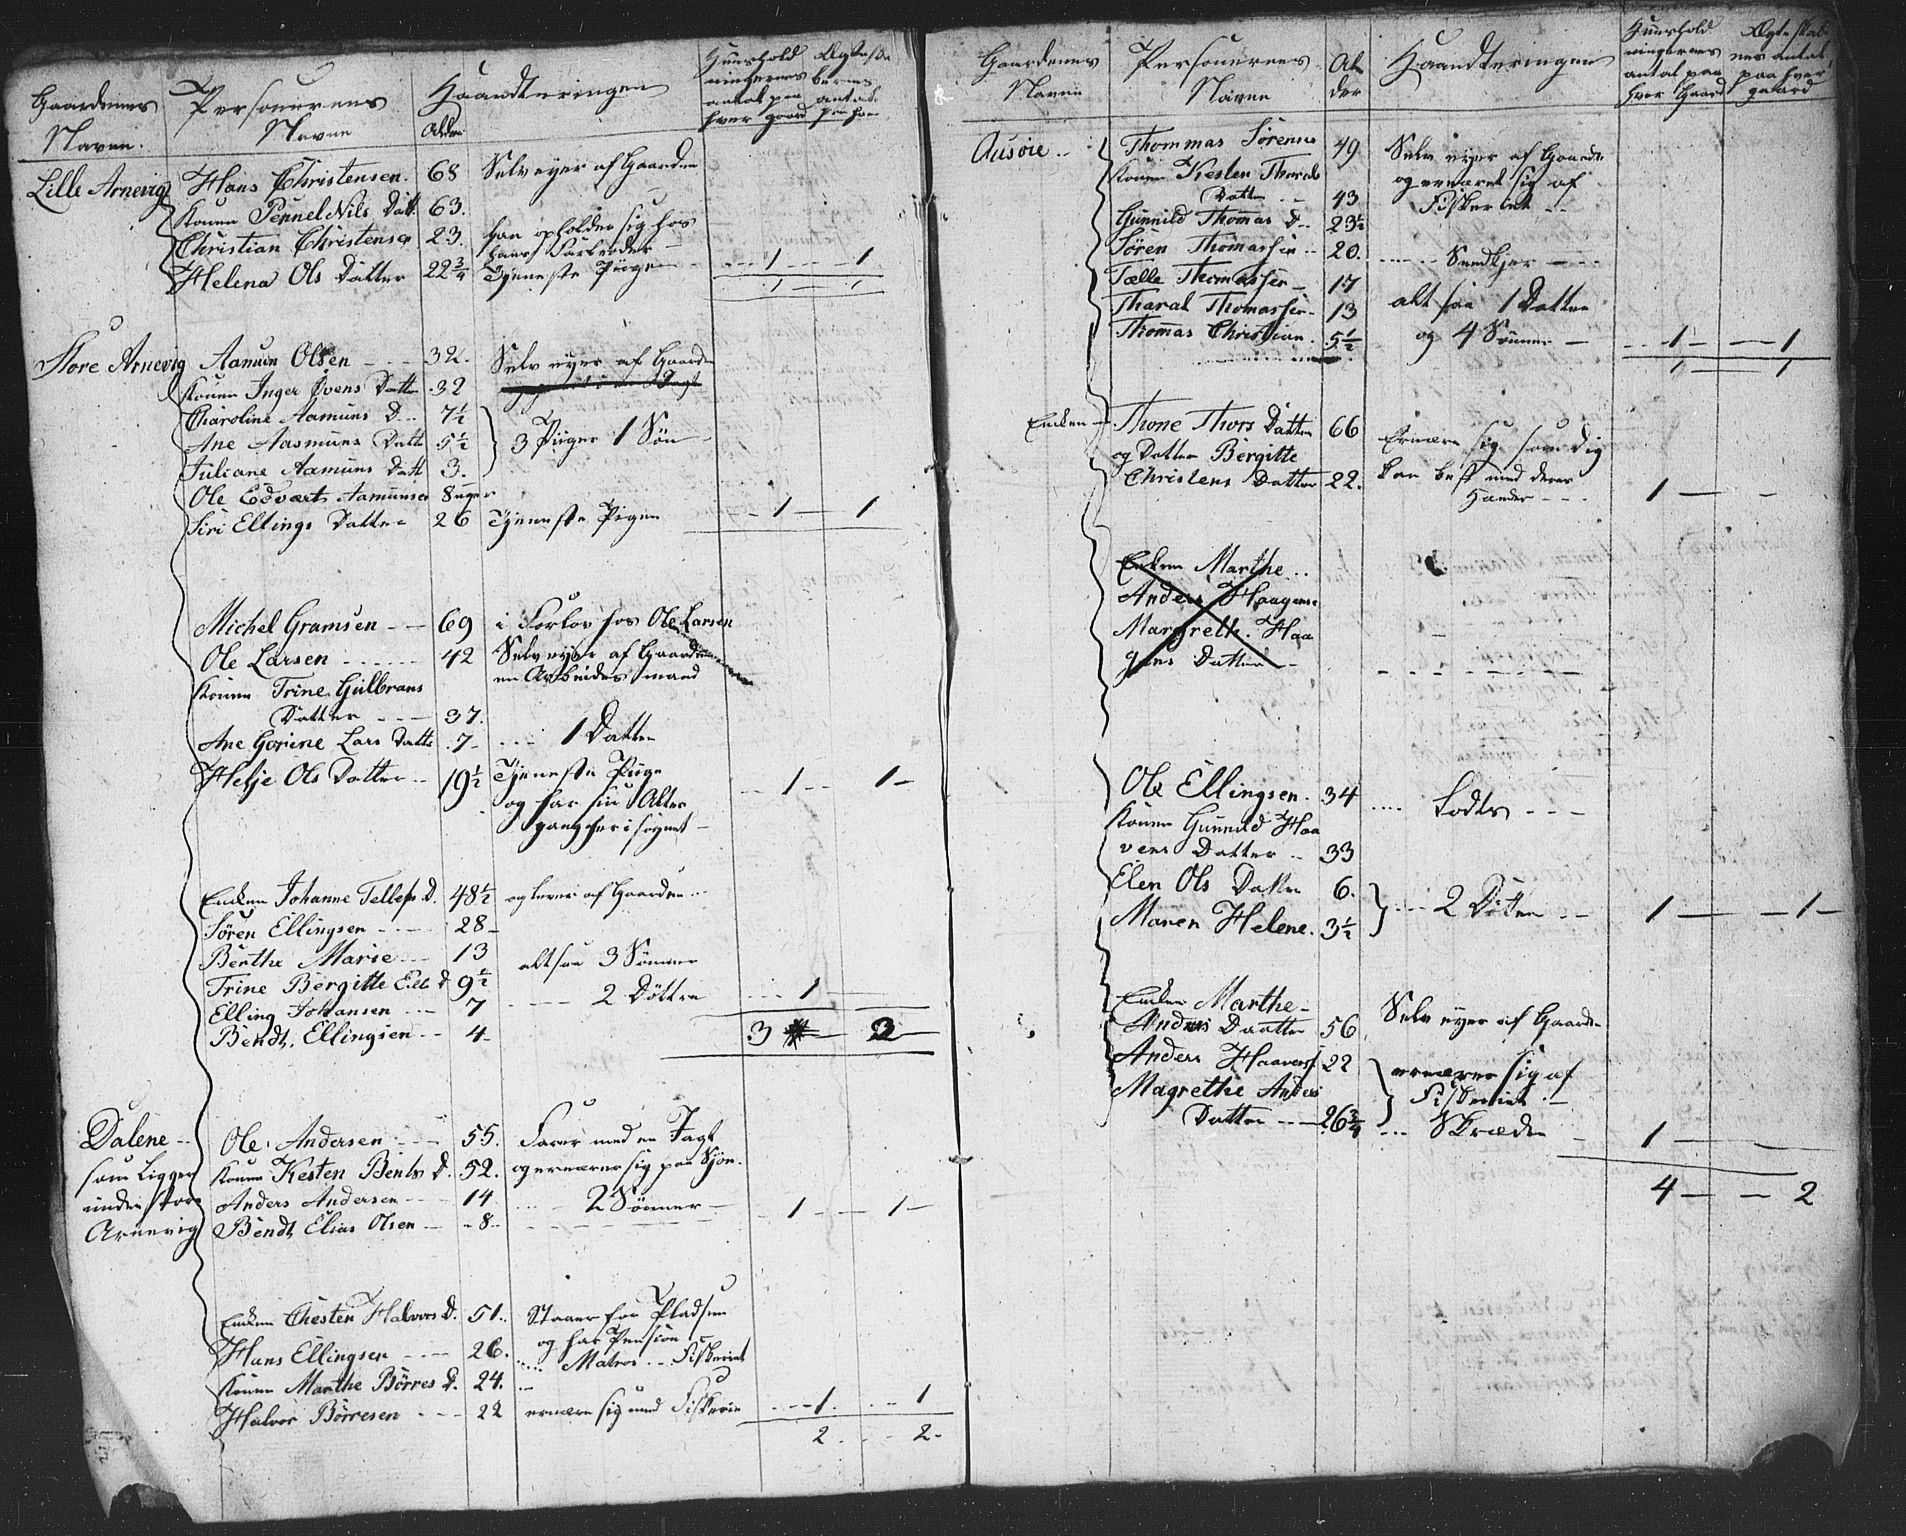 Gaardenes Navne. Personernes Navne Alder Haandteringen Huusholdningernes antal paa hver gaard Ægteska bernes antal paa hver
Lille Arnevig Hans Christensen. 68 Selv eyer af Gaarden
Konen Pernel Nils Datt. 63.
Christian Christensen 23. han opholder sig hos
hans Forældre
Helena Ols Datter 22 3/4 Tjeneste Piige 1 1
1 1
Store Arnevig Aamun Olsen 32. Selv eyer af Gaarden
Konen Inger Evens Datter 32
Charoline Aamuns D. 7 1/2
Ane Aasmuns Datt 5 1/2 3 Piiger 1 Søn
Juliane Aamuns Datt 3.
Ole Edvart Aamunsen 8 uger
Siri Ellings Datter 26 Tjeneste Pigen 1 1
Michel Gramsen 69 i Forlov hos Ole Larsen
Ole Larsen 42 Selv eyer af Gaarden
Konen Trine Gulbrans en Arbeids mand
Datter 37.
Ane Gorine Lars Datter 7 1 Datter
Helje Ols Datter 19 1/2 Tjeneste Piige 1 1
og har sin Alter
gang her i sognet
Enken Johanne Tellefs D. 48 1/2 og lever af Gaarden
Søren Ellingsen 28
Berthe Marie 13 altsaa 3 Sønner
Trine Bergitte Ell. D 9 1/2 2 Døttre 1
Elling Johansen 7
Bendt Ellingsen 4 3 3
Dalene Ole Andersen 55. Farer med en Jagt
som Ligger Konen Kesten Bents D. 52. og ernærer sig paa Sjøn
under Store Anders Andersen 14 2 Sønner 1 1
Arnevig Bendt Elias Olsen 8
Enken Chesten Halvors D. 51. Staaer for Pladsen
og har Pension
Hans Ellingsen 26. Matros Fiskeriet
Konen Marthe Börres D. 24.
Halvor Börresen 22 ernære sig med Fiskerie 1 1
2 2
Gaardenes Navne Personernes Navne Alder Haandteringen Huusholdningernes antal paa hver Gaard Ægteskabernes antal paa hver gaard
Ausöie Thommas Sörensen 49 Selv eyer af Gaarden
Konen Kesten Tharals og ernærer sig af
Datter 43 Fiskeriet
Gunnild Thomas D. 23 1/2
Sören Thomassen 20. Snedkjer
Tælle Thomassen 17
Tharal Thomassen 13 alt saa 1 Datter
Thomas Christian 5 1/2 og 4 Sønner 1 1
1 1
Enken Thone Thors Datter 66 Ernære sig som dig
og Datter Bergitte
Christens Datter 22. kan best med deres
Hænder 1
Enken Marthe
Anders Haagens
Margreth. Haa
gens Datter
Ole Ellingsen 34 Lodts
Konen Gunnild Haa
vens Datter 33
Elen Ols Datter 6. 2 Döttre 1 1
Maren Helene. 3 1/2
Enken Marthe
Anders Daatter 56 Selv eyer af Gaarden
Anders Haavens. 22 ernærer sig af
Magrethe Anders Fiskeriet
Datter 26 3/4 Skræder 1
4 2